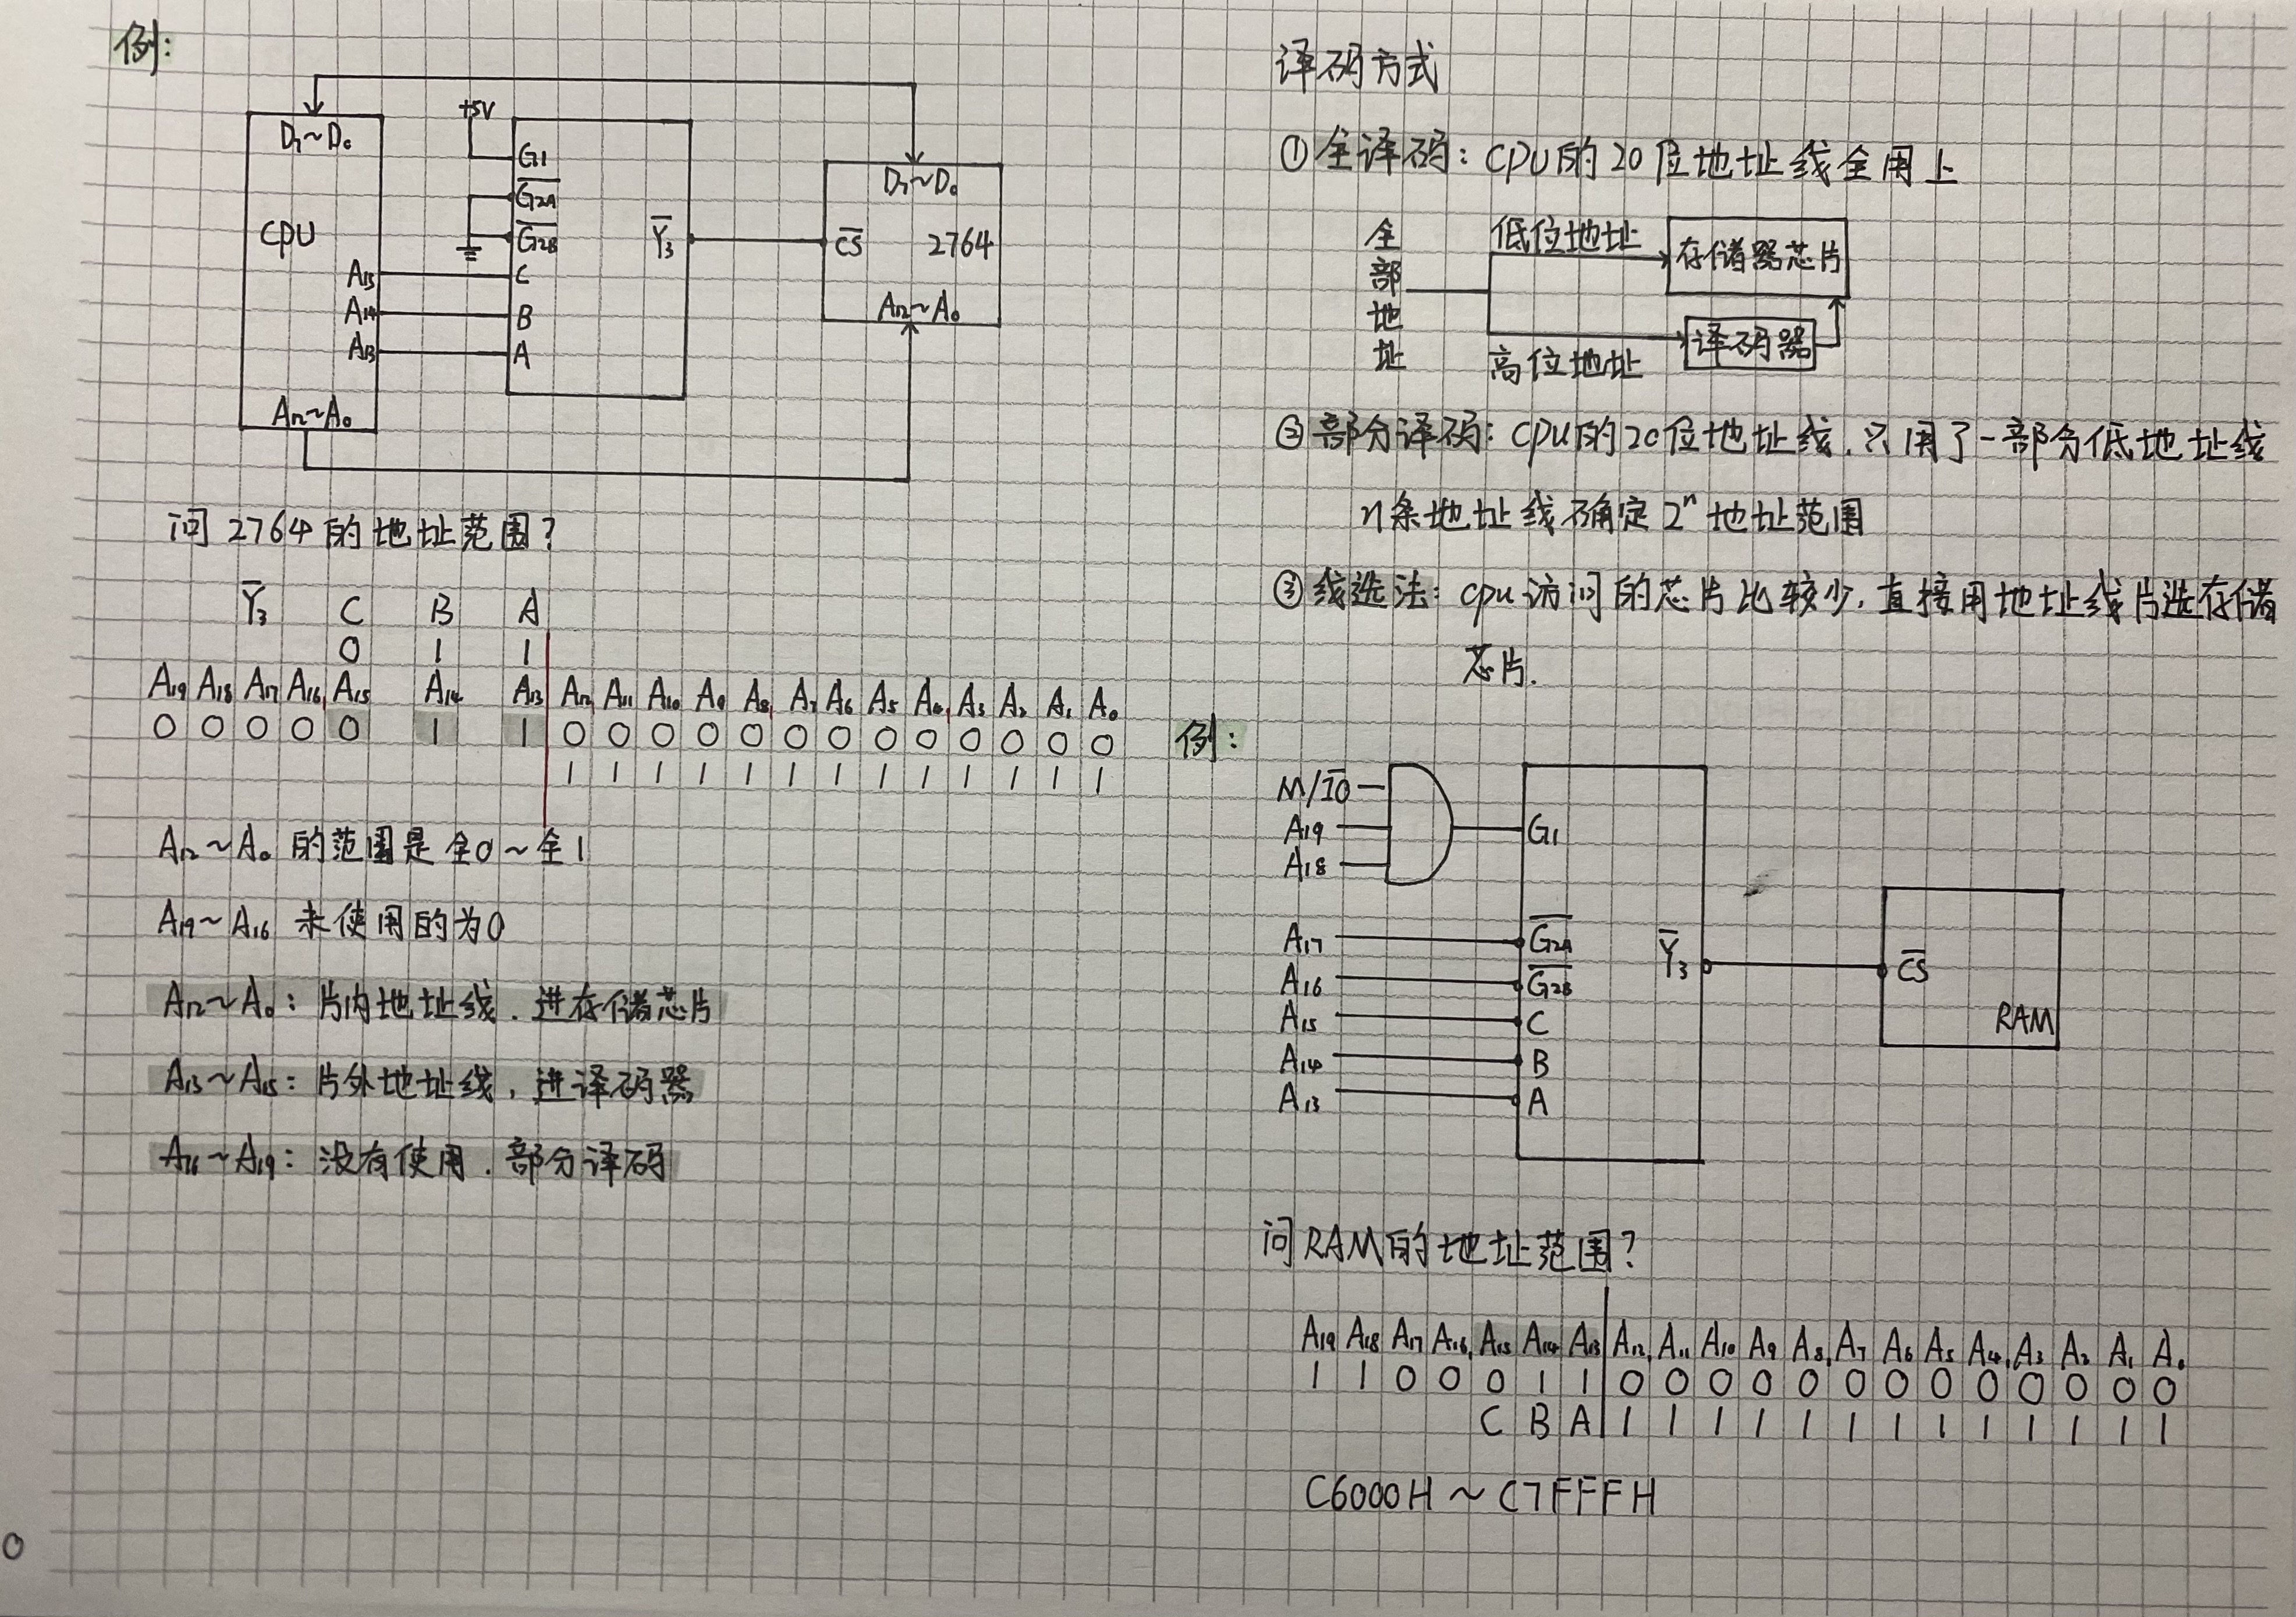 例:
+5V
D₇~D₀
G1
G2A
CPU
G2B
Y̅₃
A₁₅
C
A₁₄
B
A₁₃
A
A₁₂~A₀
D₇~D₀
C̅S̅ 2764
A₁₂~A₀
问 2764 的地址范围?
Y̅₃ C B A
0 1 1
A₁₉ A₁₈ A₁₇ A₁₆ A₁₅ A₁₄ A₁₃ A₁₂ A₁₁ A₁₀ A₉ A₈ A₇ A₆ A₅ A₄ A₃ A₂ A₁ A₀
0 0 0 0 0 1 1 0 0 0 0 0 0 0 0 0 0 0 0 0
1 1 1 1 1 1 1 1 1 1 1 1 1
A₁₂~A₀ 的范围是 全0~全1
A₁₉~A₁₆ 未使用的为0
A₁₂~A₀: 片内地址线. 进存储芯片
A₁₃~A₁₅: 片外地址线, 进译码器
A₁₆~A₁₉: 没有使用. 部分译码
0
译码方式
①全译码: CPU的20位地址线全用上
全部地址
低位地址
存储器芯片
高位地址
译码器
②部分译码: CPU的20位地址线.只用了一部分低地址线
n条地址线确定2ⁿ地址范围
③线选法: cpu访问的芯片比较少.直接用地址线片选存储
芯片.
例:
M/I̅O̅
A₁₉
G1
A₁₈
A₁₇
G̅₂̅A̅
A₁₆
G̅₂̅B̅
A₁₅
C
A₁₄
B
A₁₃
A
Y̅₃
C̅S̅
RAM
问RAM的地址范围?
A₁₉ A₁₈ A₁₇ A₁₆ A₁₅ A₁₄ A₁₃ A₁₂ A₁₁ A₁₀ A₉ A₈ A₇ A₆ A₅ A₄ A₃ A₂ A₁ A₀
1 1 0 0 0 1 1 0 0 0 0 0 0 0 0 0 0 0 0 0
C B A 1 1 1 1 1 1 1 1 1 1 1 1 1
C6000H ~ C7FFFH